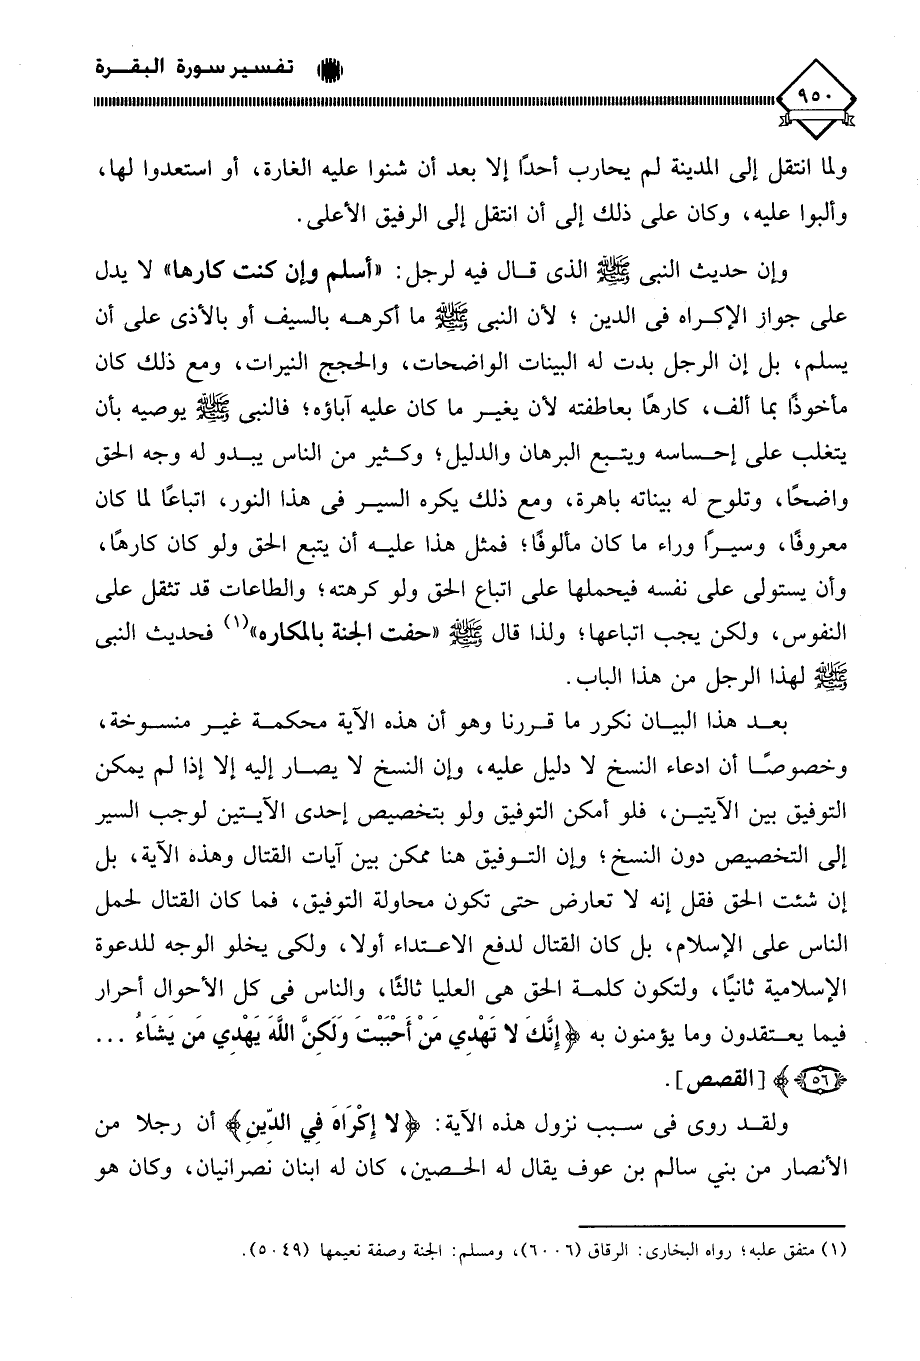 تفسير سورة البقرة
٩٥٠
ولما انتقل إلى المدينة لم يحارب أحدًا إلا بعد أن شنوا عليه الغارة، أو استعدوا لها،
وألبوا عليه، وكان على ذلك إلى أن انتقل إلى الرفيق الأعلى.
وإن حديث النبى ﷺ الذى قال فيه لرجل: «أسلم وإن كنت كارها» لا يدل
على جواز الإكراه فى الدين ؛ لأن النبى ﷺ ما أكرهه بالسيف أو بالأذى على أن
يسلم، بل إن الرجل بدت له البينات الواضحات، والحجج النيرات، ومع ذلك كان
مأخوذًا بما ألف، كارهًا بعاطفته لأن يغير ما كان عليه آباؤه؛ فالنبى ﷺ يوصيه بأن
يتغلب على إحساسه ويتبع البرهان والدليل؛ وكثير من الناس يبدو له وجه الحق
واضحًا، وتلوح له بيناته باهرة، ومع ذلك يكره السير فى هذا النور، اتباعًا لما كان
معروفًا، وسيرًا وراء ما كان مألوفًا؛ فمثل هذا عليه أن يتبع الحق ولو كان كارهًا،
وأن يستولى على نفسه فيحملها على اتباع الحق ولو كرهته؛ والطاعات قد تثقل على
النفوس، ولكن يجب اتباعها؛ ولذا قال ﷺ «حفت الجنة بالمكاره»(١) فحديث النبى
ﷺ لهذا الرجل من هذا الباب.
بعد هذا البيان نكرر ما قررنا وهو أن هذه الآية محكمة غير منسوخة،
وخصوصًا أن ادعاء النسخ لا دليل عليه، وإن النسخ لا يصار إليه إلا إذا لم يمكن
التوفيق بين الآيتين، فلو أمكن التوفيق ولو بتخصيص إحدى الآيتين لوجب السير
إلى التخصيص دون النسخ؛ وإن التوفيق هنا ممكن بين آيات القتال وهذه الآية، بل
إن شئت الحق فقل إنه لا تعارض حتى تكون محاولة التوفيق، فما كان القتال لحمل
الناس على الإسلام، بل كان القتال لدفع الاعتداء أولا، ولكى يخلو الوجه للدعوة
الإسلامية ثانيًا، ولتكون كلمة الحق هى العليا ثالثًا، والناس فى كل الأحوال أحرار
فيما يعتقدون وما يؤمنون به ﴿إِنَّكَ لا تَهْدِي مَنْ أَحْبَبْتَ وَلَكِنَّ اللَّهَ يَهْدِي مَن يَشَاءُ ...
﴿٥٦﴾﴾ [القصص].
ولقد روى فى سبب نزول هذه الآية: ﴿لا إِكْرَاهَ فِي الدِّينِ﴾ أن رجلا من
الأنصار من بني سالم بن عوف يقال له الحصين، كان له ابنان نصرانيان، وكان هو
(١) متفق عليه؛ رواه البخارى: الرقاق (٦٠٠٦)، ومسلم: الجنة وصفة نعيمها (٥٠٤٩).